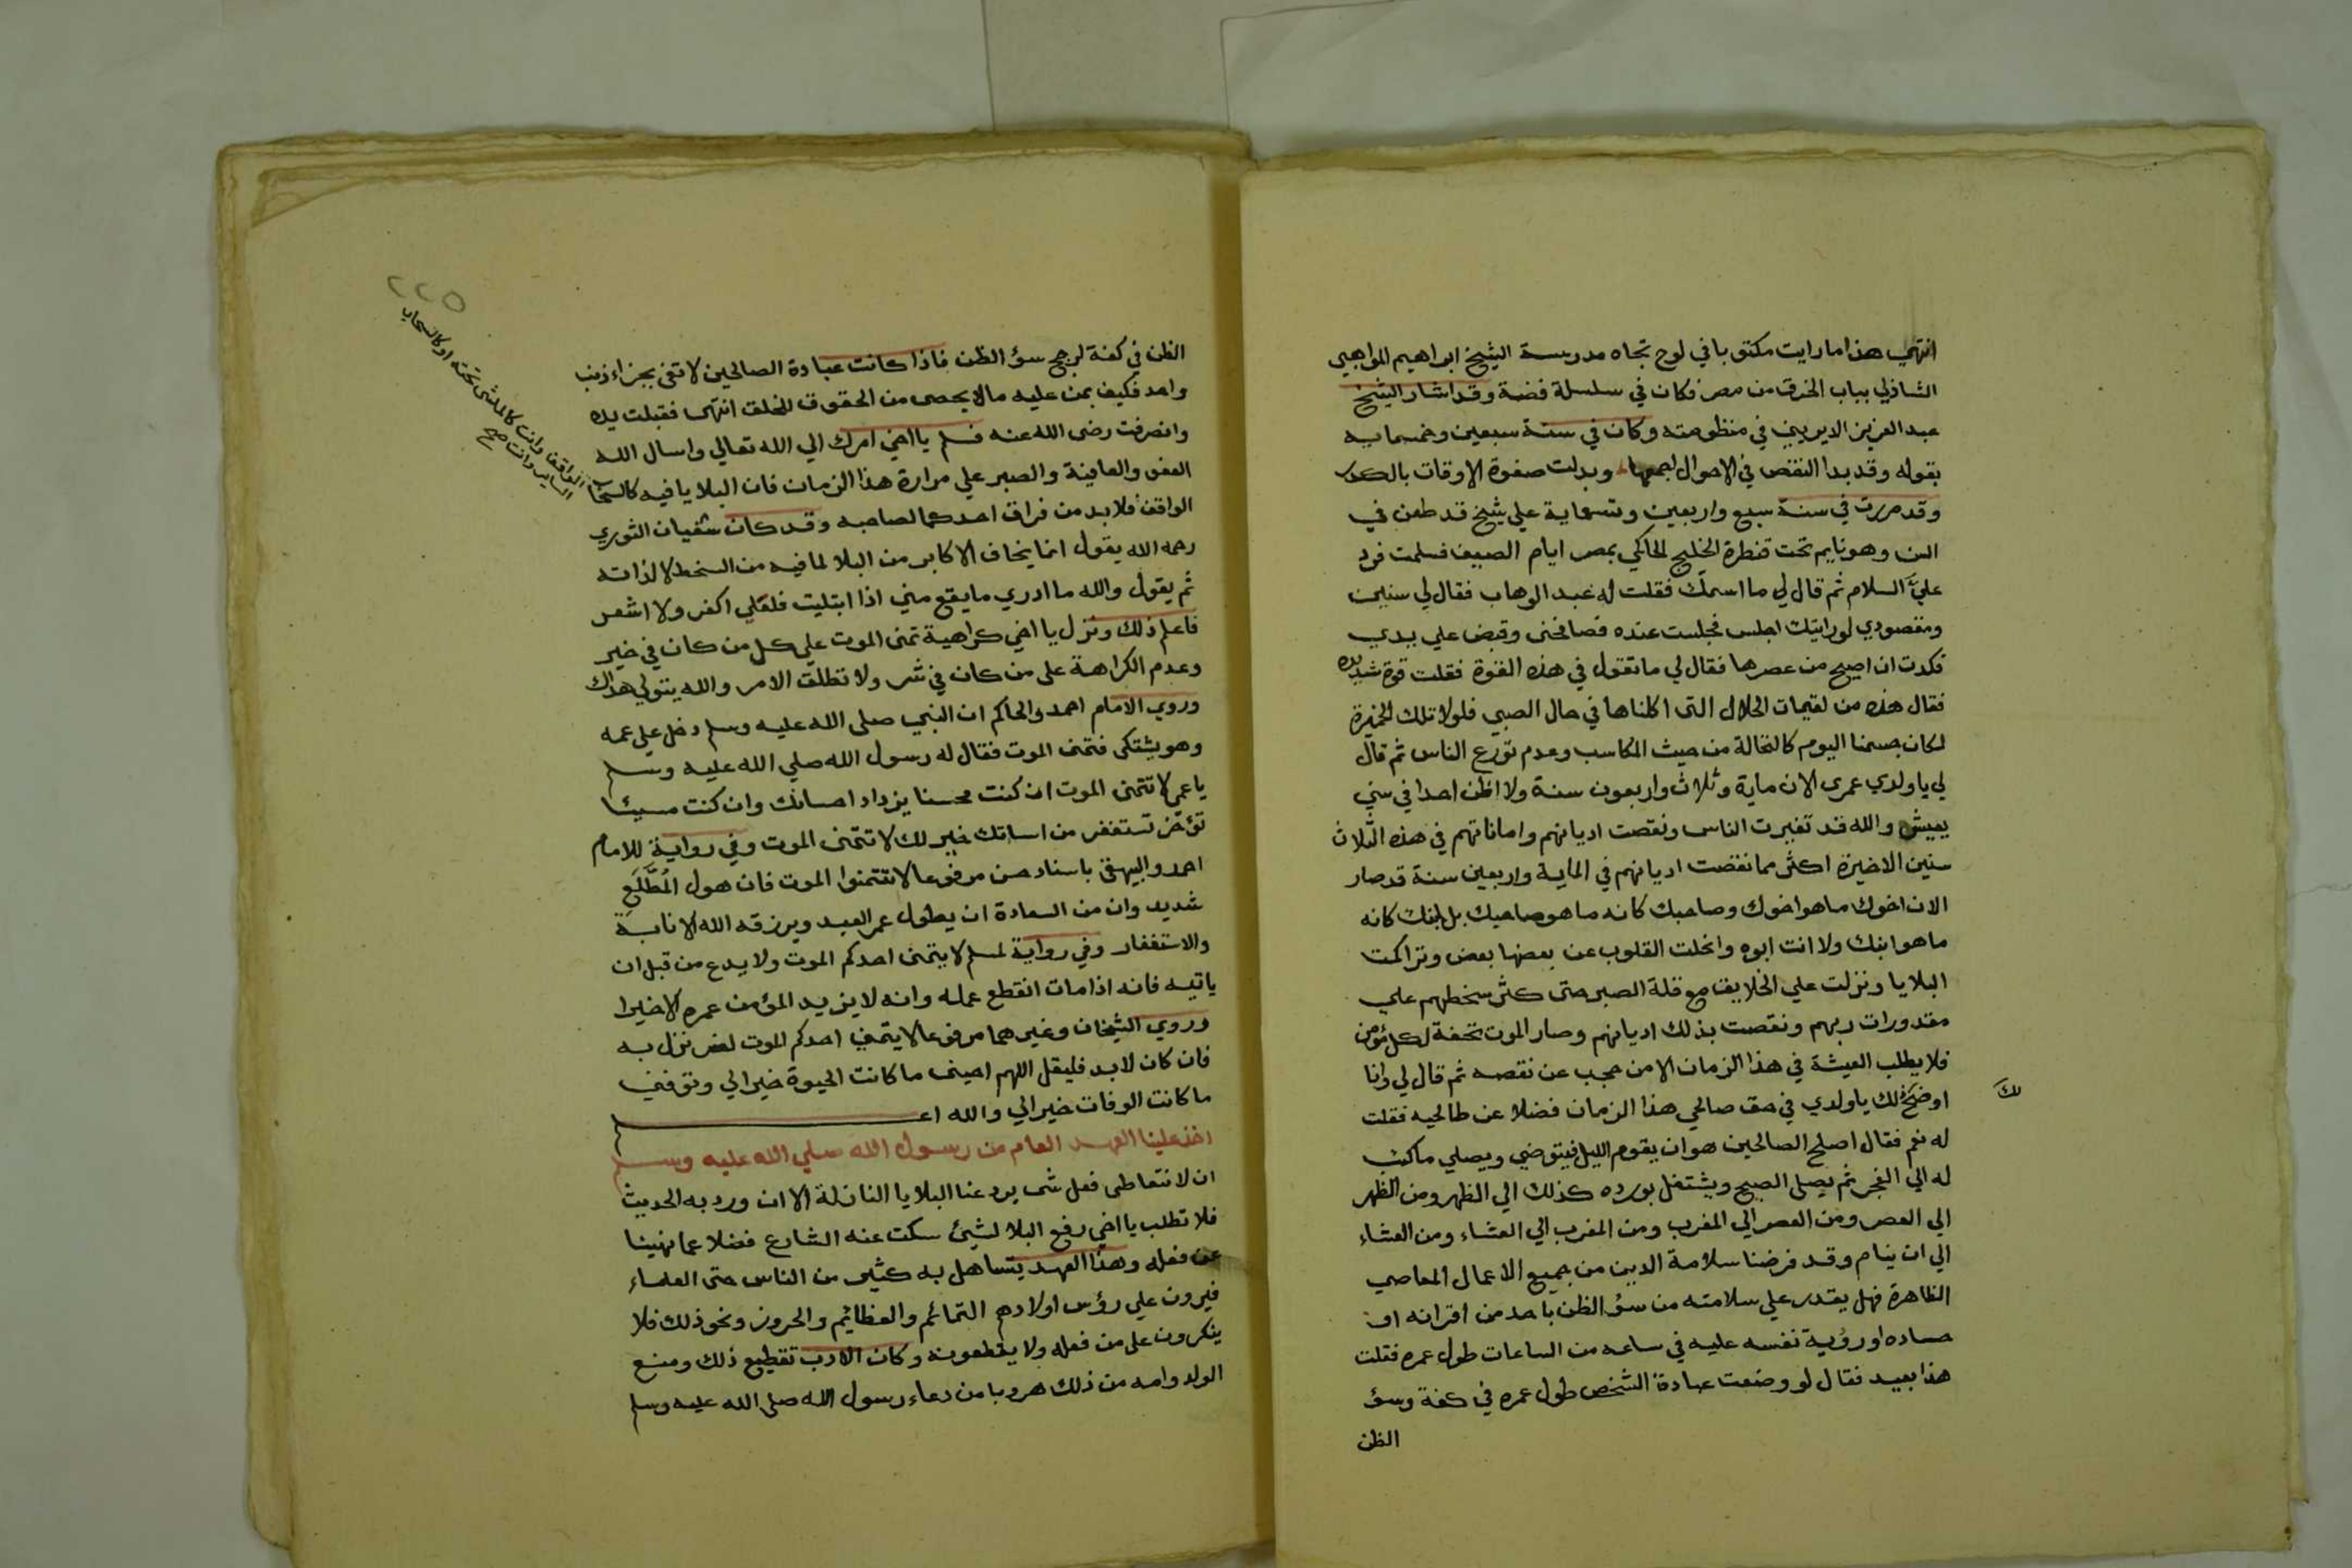 انتهي هذا ما رايت مكتوبا في لوح تجاه مدرسة الشيخ ابراهيم المواهبي
الشاذلي بباب الخرق من مصر فكان في سلسلة فضة وقد اشار الشيخ
عبد العزيز الديريني في منظومته وكان في سنة سبعين وخمسمايه
بقوله وقد بدا النقص في الاحوال اجمعها وبدلت صفوة الاوقات بالكدر
وقد مررت في سنة سبع واربعين وتسعماية علي شيخ قد طعن في
السن وهو نايم تحت قنطرة الخليج الحاكمي بمصر ايام الصيف فسلمت فرد
عليَّ السلام ثم قال لي ما اسمك فقلت له عبد الوهاب فقال لي سنين
ومقصودي لو رايتك اجلس فجلست عنده فصافحني وقبض علي يدي
فكدت ان اصيح من عصرها فقال لي ما تقول في هذه القوة فقلت قوة شديده
فقال هذه من لقيمات الحلال التي اكلناها في حال الصبي فلولا تلك الخميرة
لكان جسمنا اليوم كالنخالة من حيث المكاسب وعدم تورع الناس ثم قال
لي يا ولدي عمري الان ماية وثلاث واربعون سنة ولا اظن احدا في سني
يعيش والله قد تغيرت الناس ونقصت اديانهم واماناتهم في هذه الثلاث
سنين الاخيرة اكثر مما نقصت اديانهم في الماية واربعين سنة قد صار
الان اخوك ما هو اخوك وصاحبك كانه ما هو صاحبك بل ابنك كانه
ما هو ابنك ولا انت ابوه وانحلت القلوب عن بعضها بعض وتراكمت
البلايا ونزلت علي الخلايق مع قلة الصبر حتى كثر سخطهم علي
مقدورات ربهم ونقصت بذلك اديانهم وصار الموت تحفة لكل مؤمن
فلا يطلب العيشة في هذا الزمان الا من حجب عن نقصه ثم قال لي وانا
اوضح لك يا ولدي في حق صالحي هذا الزمان فضلا عن طالحيه فقلت
لك
له نعم فقال اصلح الصالحين هو ان يقوم الليل فيتوضي ويصلي ما كتب
له الي الفجر ثم يصلى الصبح ويشتغل بورده كذلك الي الظهر ومن الظهر
الي العصر ومن العصر الي المغرب ومن المغرب الي العشاء ومن العشاء
الي ان ينام وقد فرضنا سلامة الدين من جميع الاعمال المعاصي
الظاهرة فهل يقدر علي سلامته من سؤ الظن باحد من اقرانه او
حساده او رؤية نفسه عليه في ساعه من الساعات طول عمره فقلت
هذا بعيد فقال لو وضعت عبادة الشخص طول عمره في كفة وسؤ
الظن
٢٢٥
الظن في كفة لرجح سؤ الظن فاذا كانت عبادة الصالحين لا تفى بجزاء ذنب
واحد فكيف بمن عليه ما لا يحصى من الحقوق للخلق انتهى فقبلت يده
وانصرفت رضى الله عنه فسلم يا اخي امرك الي الله تعالي واسال الله
العفو والعافية والصبر علي مرارة هذا الزمان فان البلايا فيه كالسحاب
الواقف وانت كالماشي تحته او كالسحاب
الساير وانت صح
الواقف فلا بد من فراق احدكما لصاحبه وقد كان سفيان الثوري
رحمه الله يقول انما يخاف الاكابر من البلا لما فيه من السخط لا لذاته
ثم يقول والله ما ادري ما يقع مني اذا ابتليت فلعلي اكفر ولا اشعر
فاعلم ذلك ونزل يا اخي كراهية تمنى الموت علي كل من كان في خير
وعدم الكراهة على من كان في شر ولا تطلق الامر والله يتولي هداك
وروي الامام احمد والحاكم ان النبي صلى الله عليه وسلم دخل علي عمه
وهو يشتكى فتمنى الموت فقال له رسول الله صلي الله عليه وسلم
يا عمي لا تتمنى الموت ان كنت محسنا يزداد احسانك وان كنت مسيئا
تؤخر تستغفر من اساتك خير لك لا تتمنى الموت وفي رواية للامام
احمد والبيهقي باسناد حسن مرفوعا لا تتمنوا الموت فان هول المُطَّلَعِ
شديد وان من السعادة ان يطول عمر العبد ويرزقه الله الانابة
والاستغفار وفي رواية لمسلم لا يتمنى احدكم الموت ولا يدع من قبل ان
ياتيه فانه اذا مات انقطع عمله وانه لا يزيد المؤمن عمره الا خيرا
وروي الشيخان وغيرهما مرفوعا لا يتمني احدكم الموت لضر نزل به
فان كان لا بد فليقل اللهم احيني ما كانت الحيوة خيرا لي وتوفني
ما كانت الوفات خيرا لي والله اعلم
اخذ علينا العهد العام من رسول الله صلي الله عليه وسلم
ان لا نتعاطى فعل شى يرد عنا البلايا النازلة الا ان ورد به الحديث
فلا تطلب يا اخي رفع البلا لشيئ سكت عنه الشارع فضلا عما نهينا
عن فعله وهذا العهد يتساهل به كثير من الناس حتى العلماء
فيرون علي رؤس اولادهم التمائم والعظائم والحروز ونحو ذلك فلا
ينكرون على من فعله ولا يقطعونه وكان الادب تقطيع ذلك ومنع
الولد وامه من ذلك هروبا من دعاء رسول الله صلى الله عليه وسلم